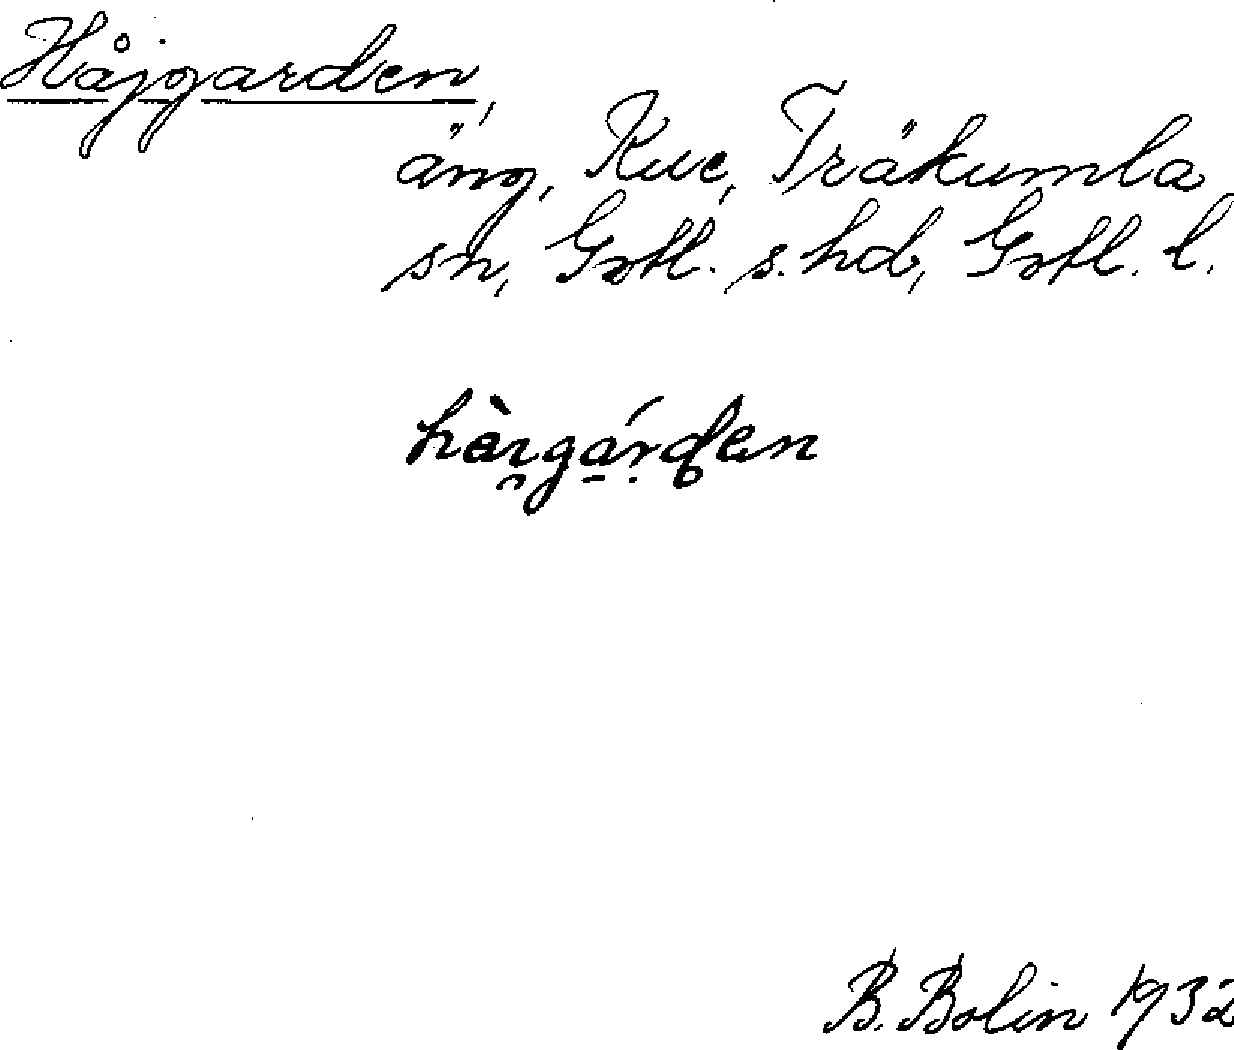 Håjgarden,
äng, Kve, Träkumla
sn, Gotl. s. hd, Gotl. l.
B. Bolin 1932